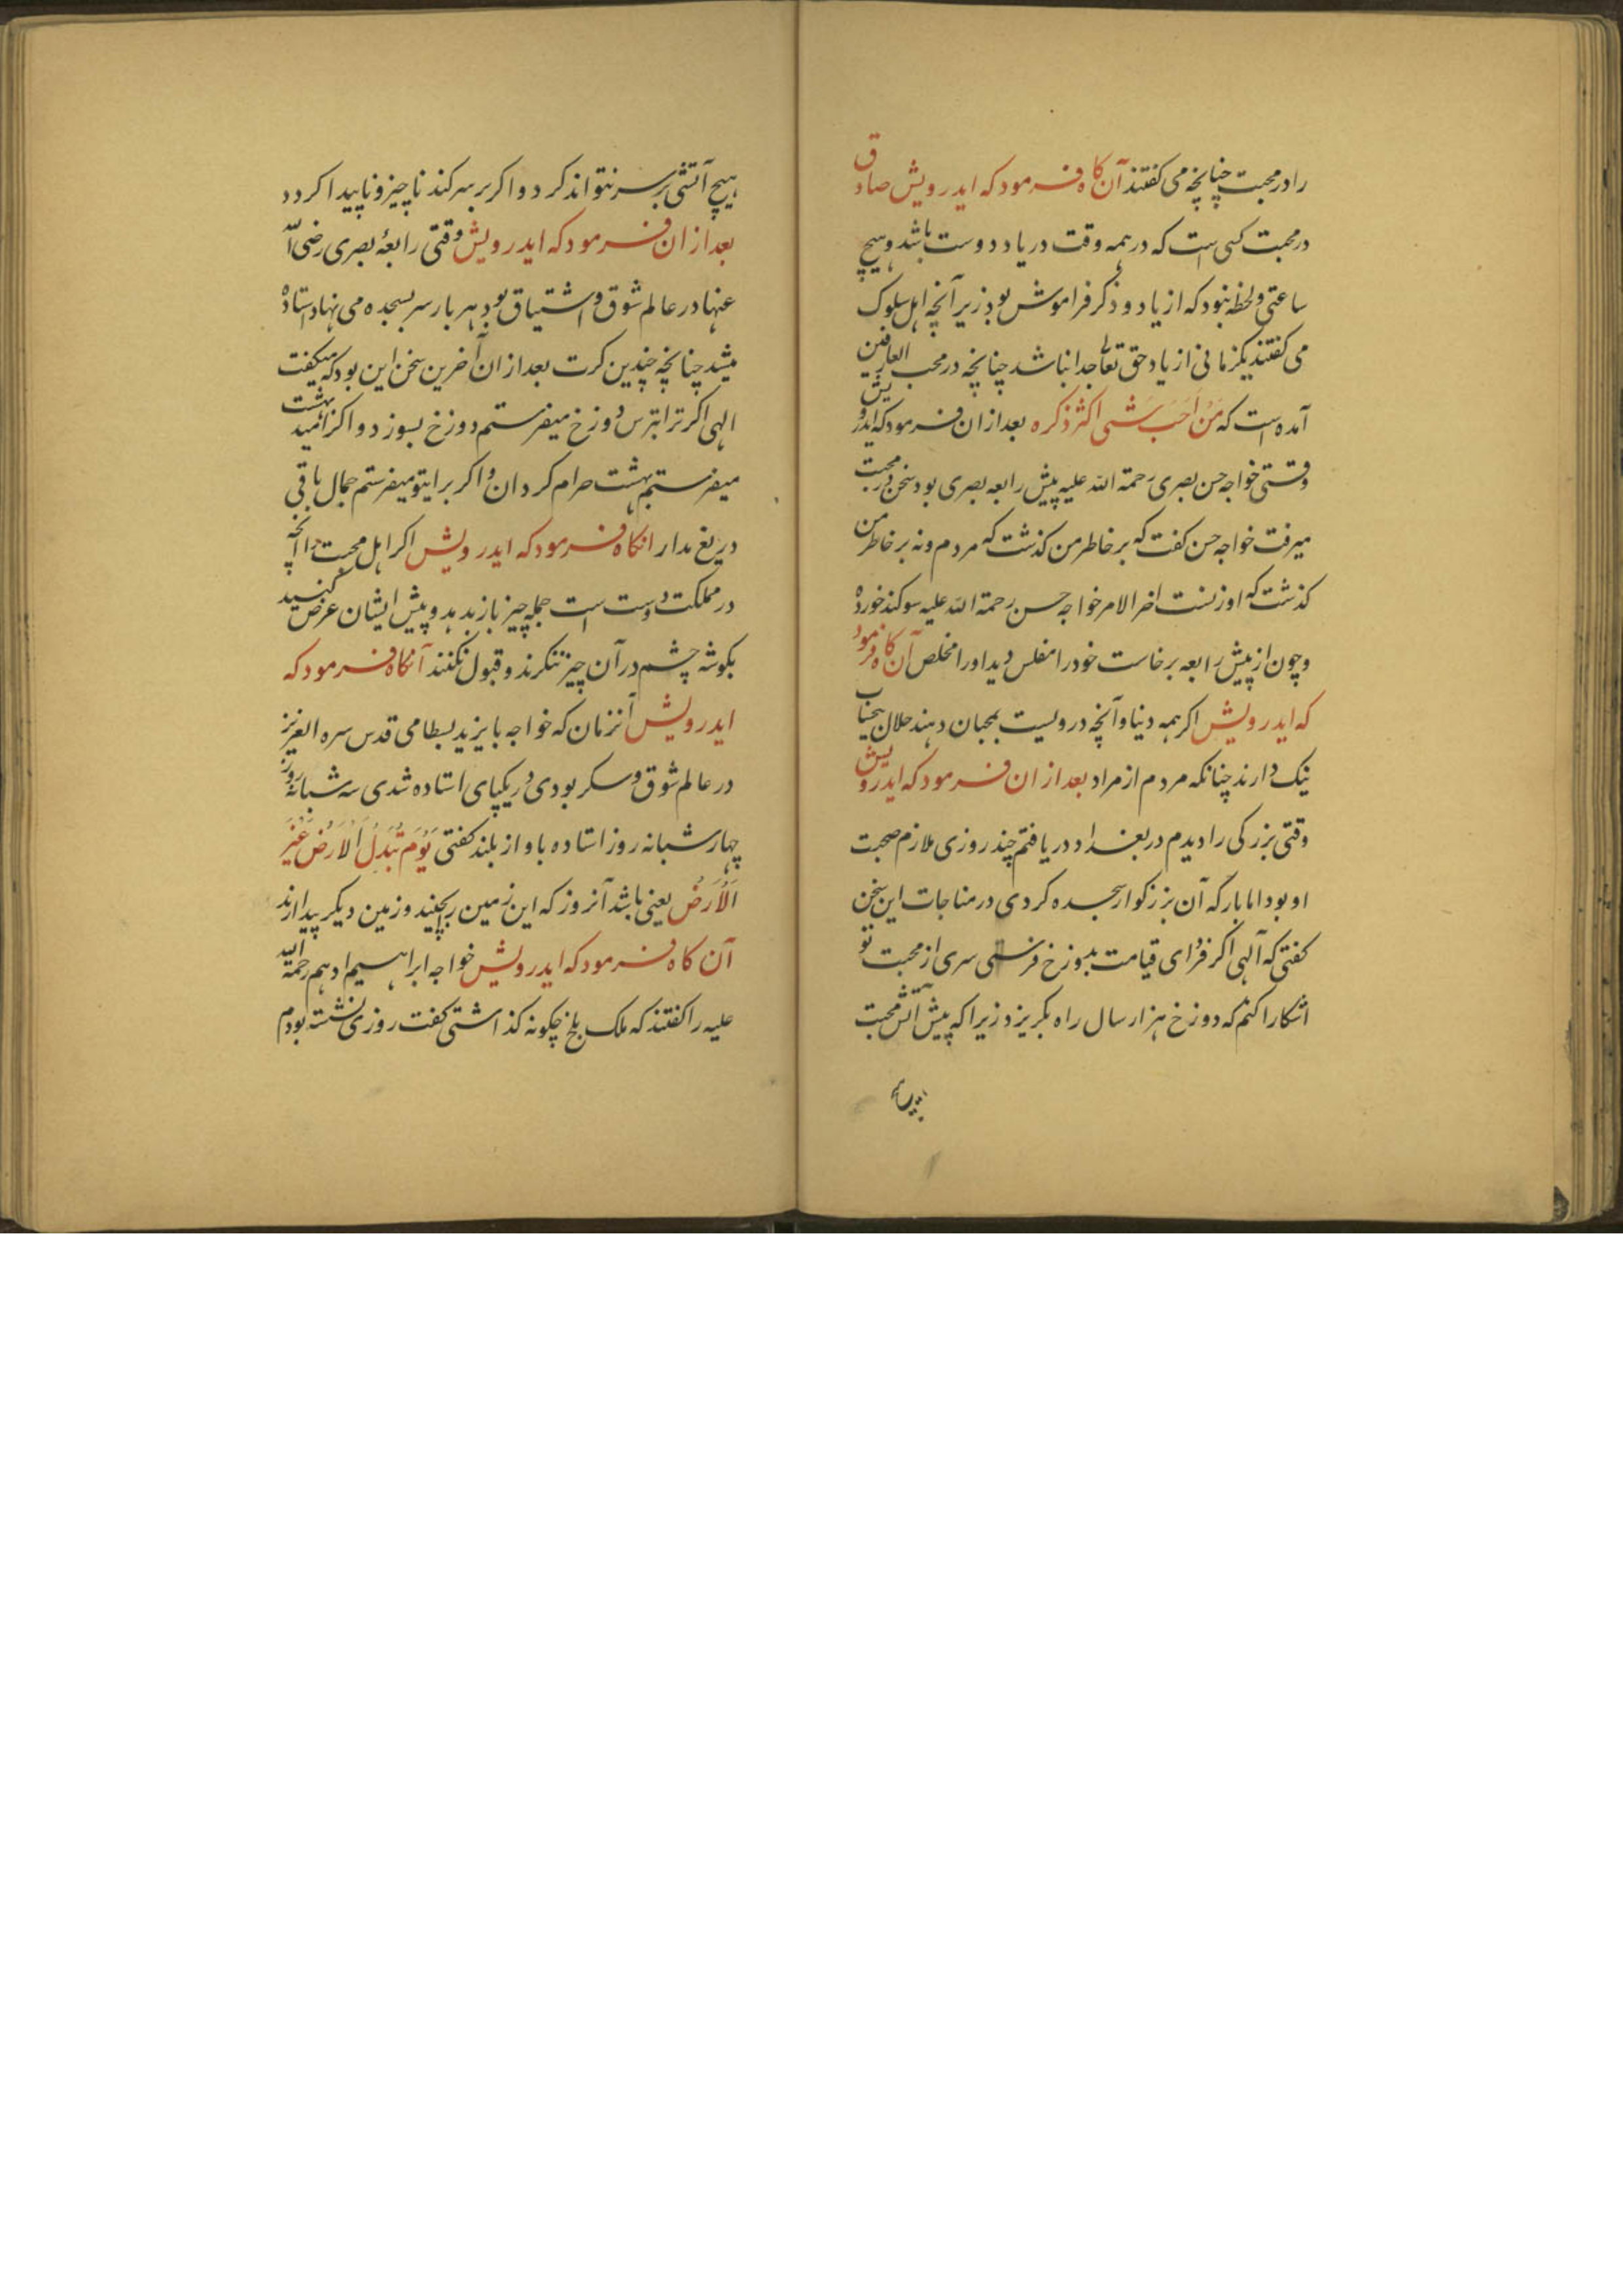 را در محبت چنانچه می کفتند آن کاه فرمود که ایدرویش صادق
در محبت کسی است که در همه وقت در یاد دوست باشد و هیچ
ساعتی و لحظه نبود که از یاد و ذکر فراموش بود زیر آنچه اهل سلوک
می کفتند یکزمانی از یاد حق تعالی جدا نباشد چنانچه در محب العارفین
آمده است که مَنْ اَحَبَ شَئی اکثر ذکره بعد از ان فرمود که ایدرویش
وقتی خواجه حسن بصری رحمة الله علیه پیش رابعه بصری بود سخن در محبت
میرفت خواجه حسن کفت که بر خاطر من کذشت که مردم و نه بر خاطر من
کذشت که او زنست اخر الامر خواجه حسن رحمة الله علیه سوکند خورده
و چون از پیش رابعه برخاست خود را مفلس دید او را مخلص آن کاه فرمود
که ایدرویش اکر همه دنیا و آنچه درویست بمحبان دهند حلال بیحساب
ننک دارند چنانکه مردم از مراد بعد از ان فرمود که ایدرویش
وقتی بزرکی را دیدم در بغداد دریافتم چند روزی ملازم صحبت
او بود اما بار که آن بزرکوار سجده کردی در مناجات این سخن
کفتی که آلهی اکر فردای قیامت بدوزخ فرستی سری از محبت تو
اشکارا کنم که دوزخ هزار سال راه بکریزد زیرا که پیش آتش محبت
هیچ آتشی بر سر نتواند کرد و اکر بر سر کند ناچیز و ناپیدا کردد
بعد از ان فرمود که ایدرویش وقتی رابعهٔ بصری رضی الله
عنها در عالم شوق و اشتیاق بود هر بار سر بسجده می نهاد استاده
میشد چنانچه چندین کرت بعد از ان آخرین سخن این بود که میکفت
الهی اکر ترا بترس دوزخ میفرستم دوزخ بسوزد و اکر بامید بهشت
میفرستم بهشت حرام کردان و اکر برایتو میفرستم جمال باقی
دریغ مدار انکاه فرمود که ایدرویش اکر اهل محبت را آنچه
در مملکت دوست است جمله چیز باز بدهد و پیش ایشان عرض کنید
بکوشه چشم در آن چیز ننکرند و قبول نکنند آنکاه فرمود که
ایدرویش آنزمان که خواجه بایزید بسطامی قدس سره العزیز
در عالم شوق و سکر بودی در یکپای استاده شدی سه شبانه روز
چهار شبانه روز استاده باواز بلند کفتی یَوْمَ تُبَدَلُ الْاَرْضُ غَیْرَ
اَلْاَرْضُ یعنی باشد آنروز که این زمین بر چیند و زمین دیکر پیدا ارند
آن کاه فرمود که ایدرویش خواجه ابراهیم ادهم رحمة الله
علیه را کفتند که ملک بلخ چکونه کذاشتی کفت روزی نشسته بودم